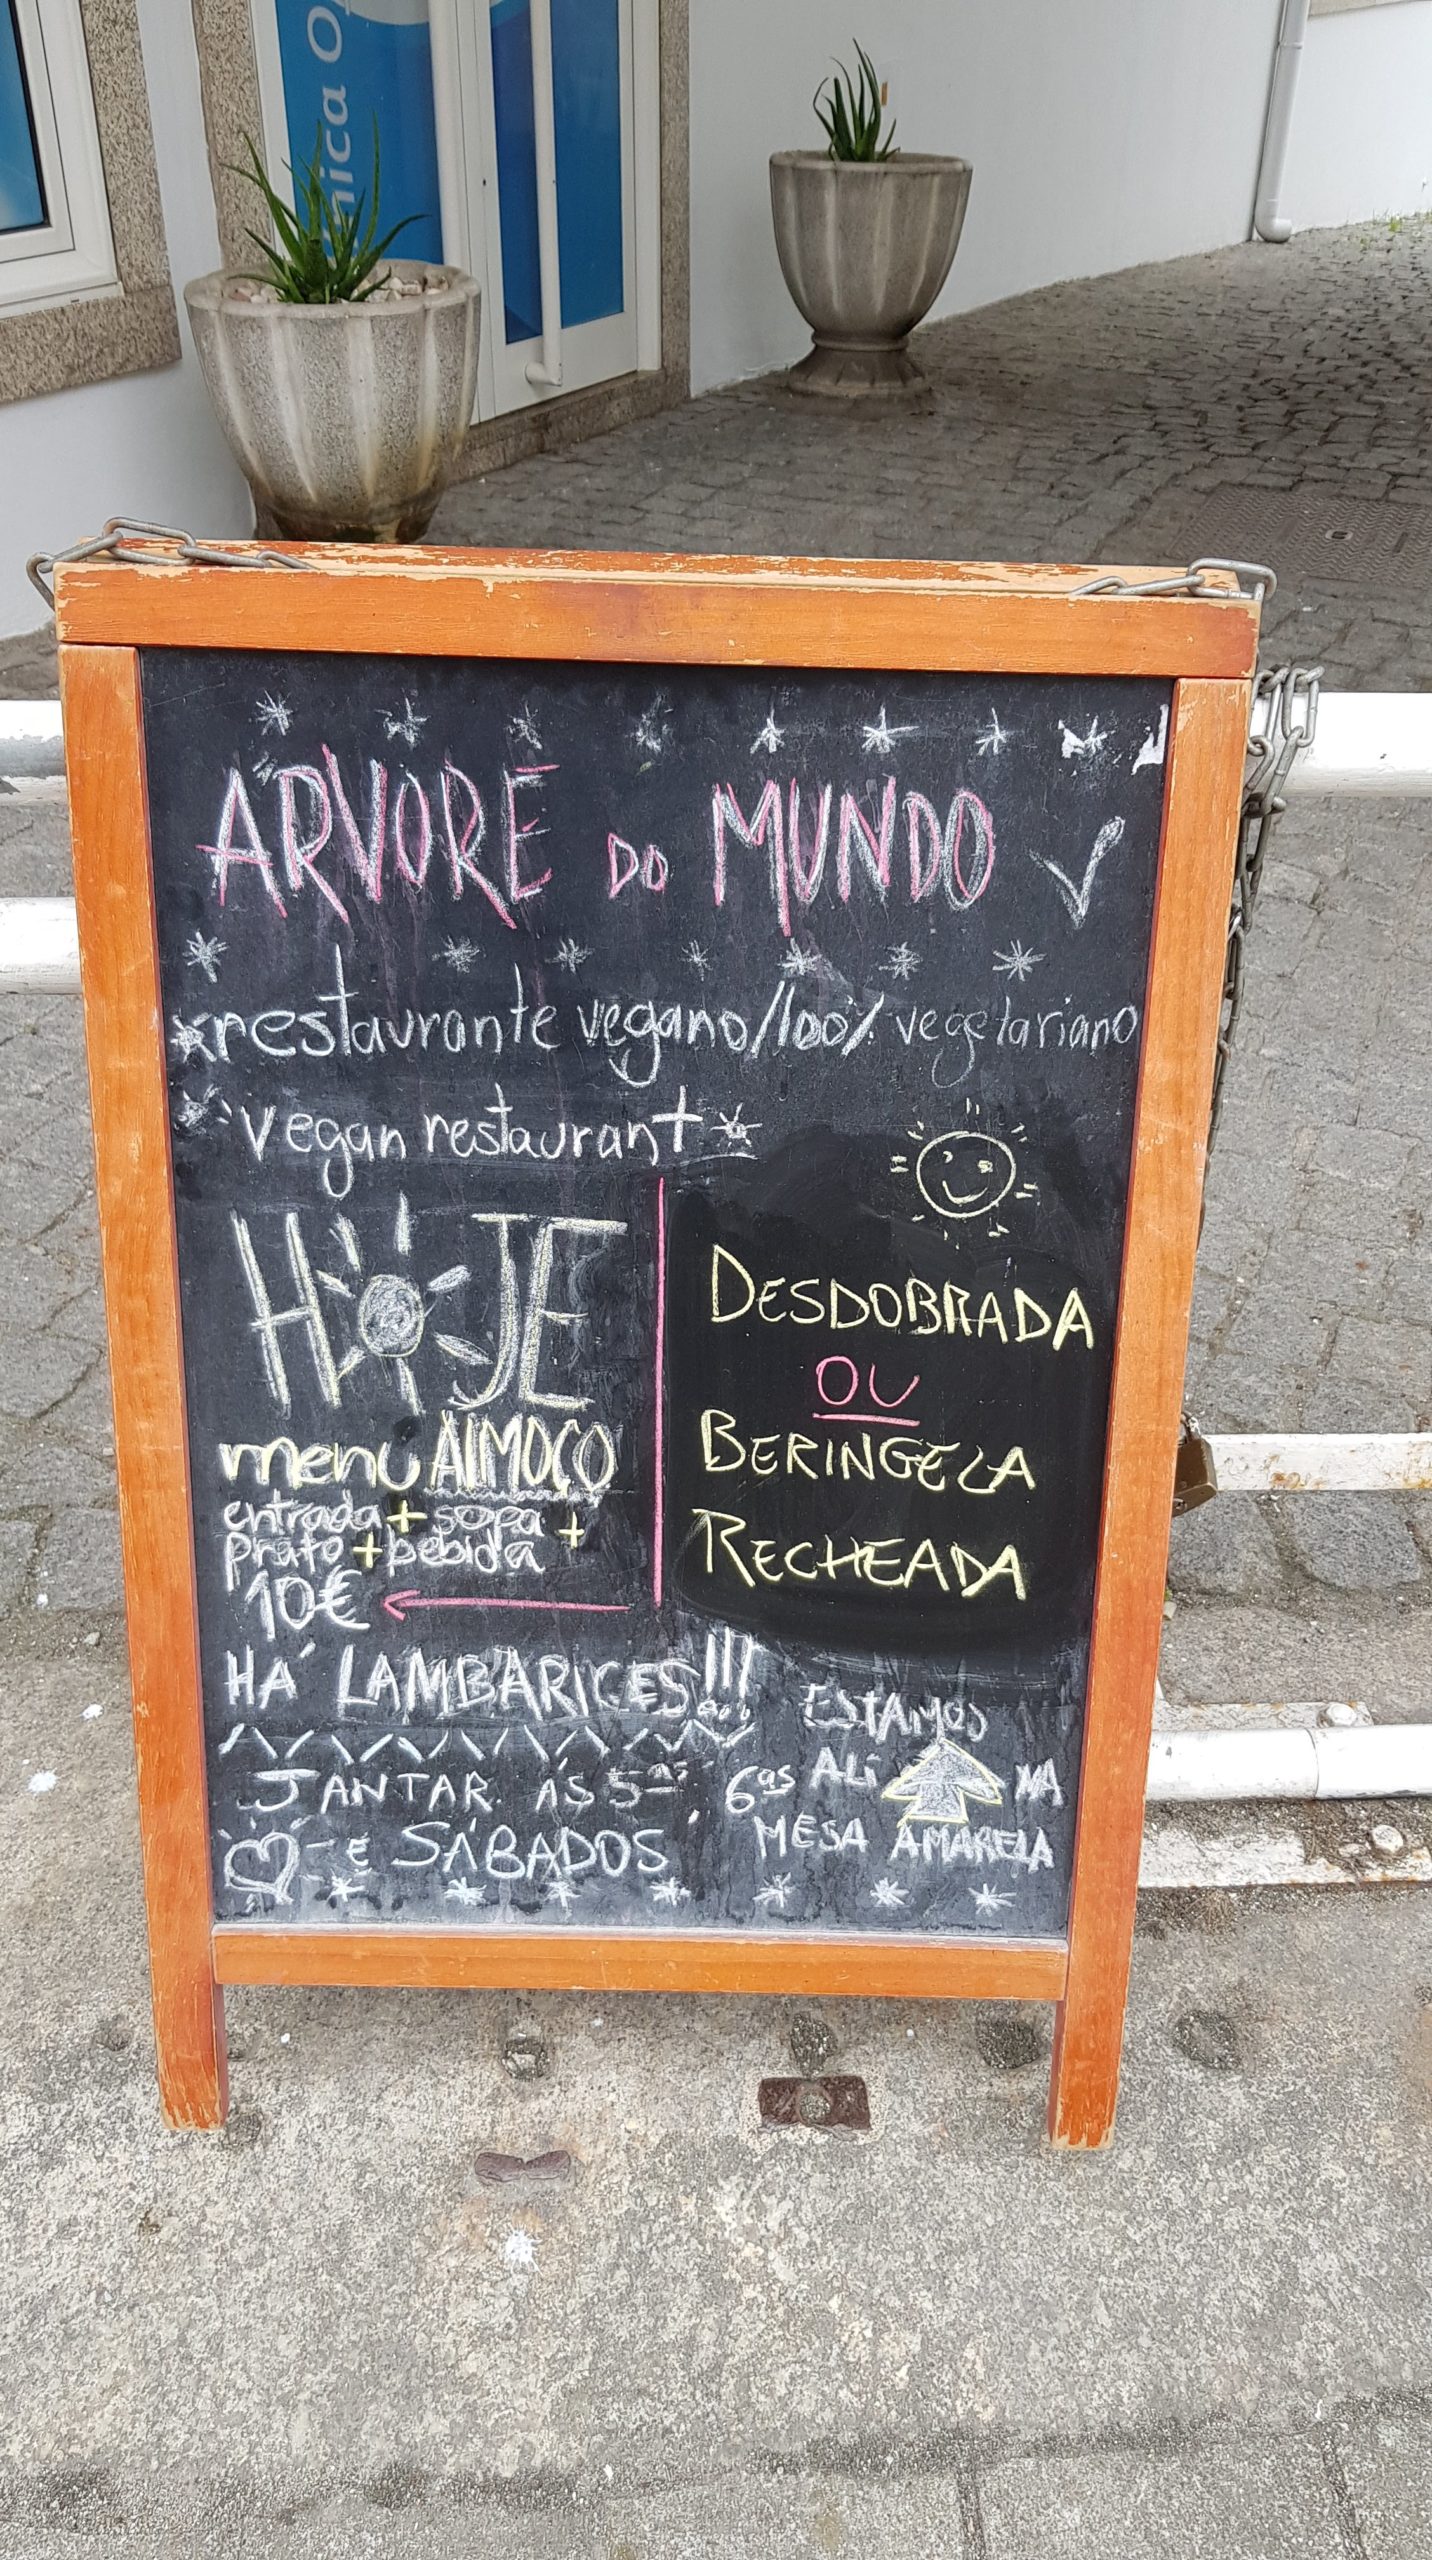 nica Op
ÁRVORE DO MUNDO
restaurante vegano/100% vegetariano
vegan restaurant
HOJE
menu AlMOÇO
entrada + sopa +
prato + bebida
10€
DESDOBRADA
OU
BERINGELA
RECHEADA
HÁ LAMBARICES!!!
JANTAR ÀS 5ªs, 6ªs
E SÁBADOS
ESTAMOS
ALI NA
MESA AMARELA